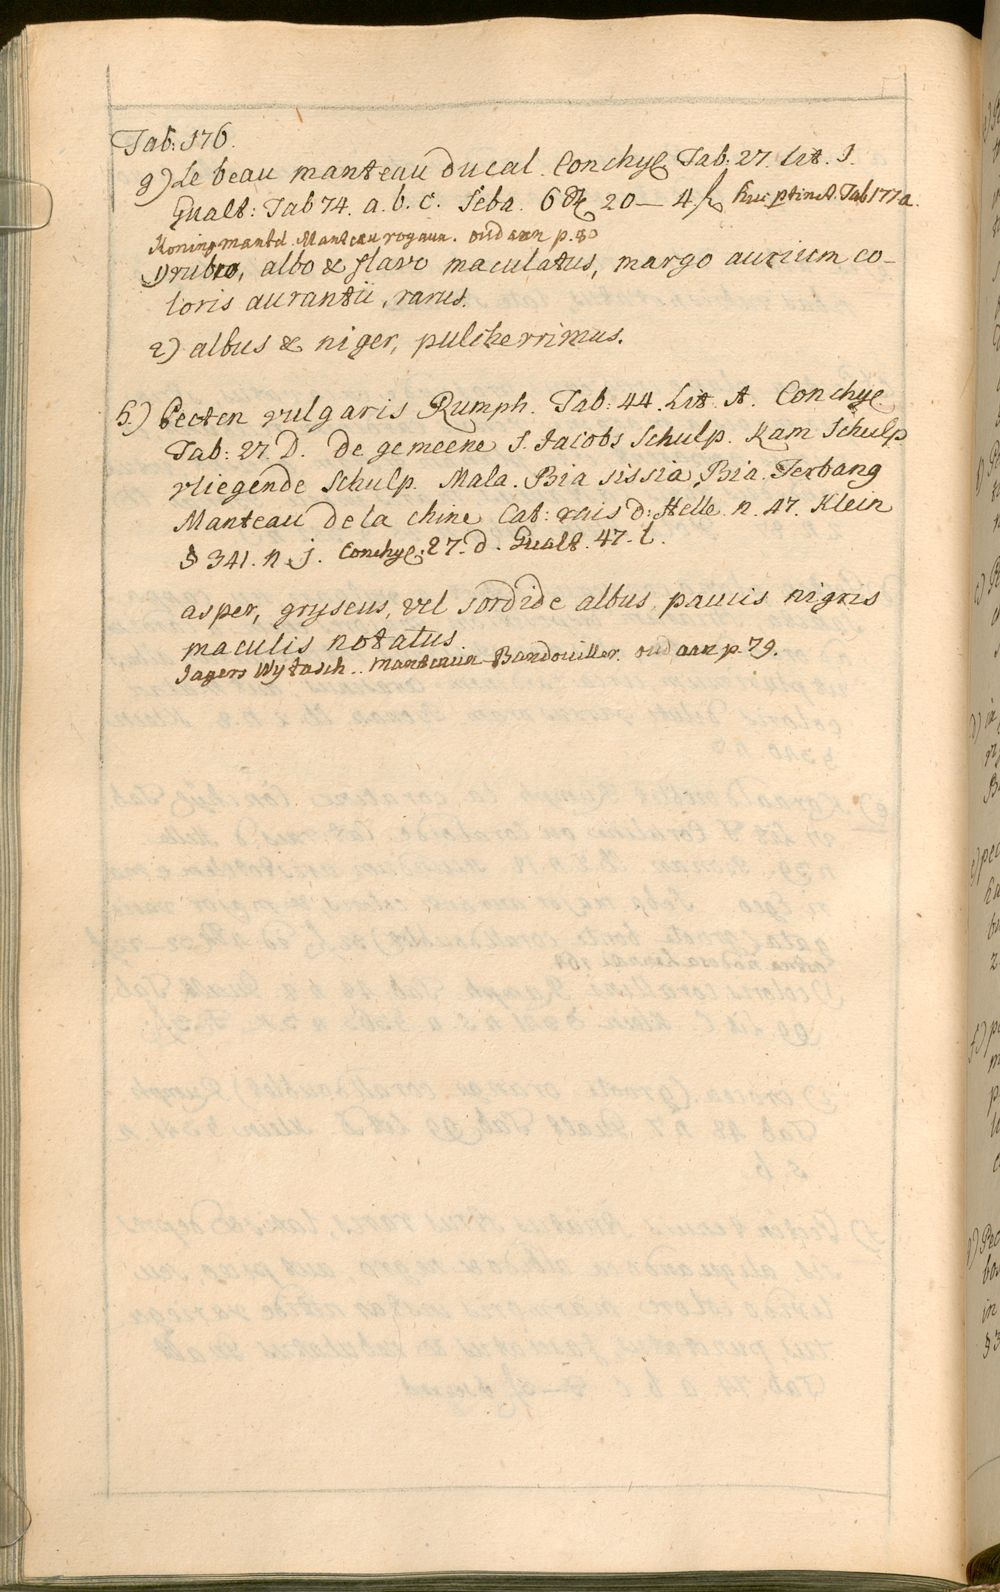 Tab: 176.
g) Le beau manteau ducal. Conchyl Tab: 27. Lit. J.
Gualt: Tab 74. a. b. c. Seba. 6 20 — 4
Tab 177 a.
Konings mantel. Manteau royaux. oud aan p. 80
1) rubro, albo & flavo maculatus, margo aurium co-
loris aurantii, rarus.
2) albus & niger, pulcherrimus.
h.) Pecten vulgaris Rumph. Tab: 44. Lit A. Conchyl
Tab: 27. D. de gemeene S. Jacobs Schulp. Kam Schulp
vliegende Schulp. Mala. Bia sissia, Bia. Terbang
Manteau de la chine Cat: rais d: Helle. n. 47. Klein
§ 341. n j. Conchyl. 27. d. Gualt. 47. l.
asper, gryseus, vel sordide albus, paucis nigris
maculis notatus.
Jagers Wytasch. Manteaux Bandouiller. oud aan p. 79.